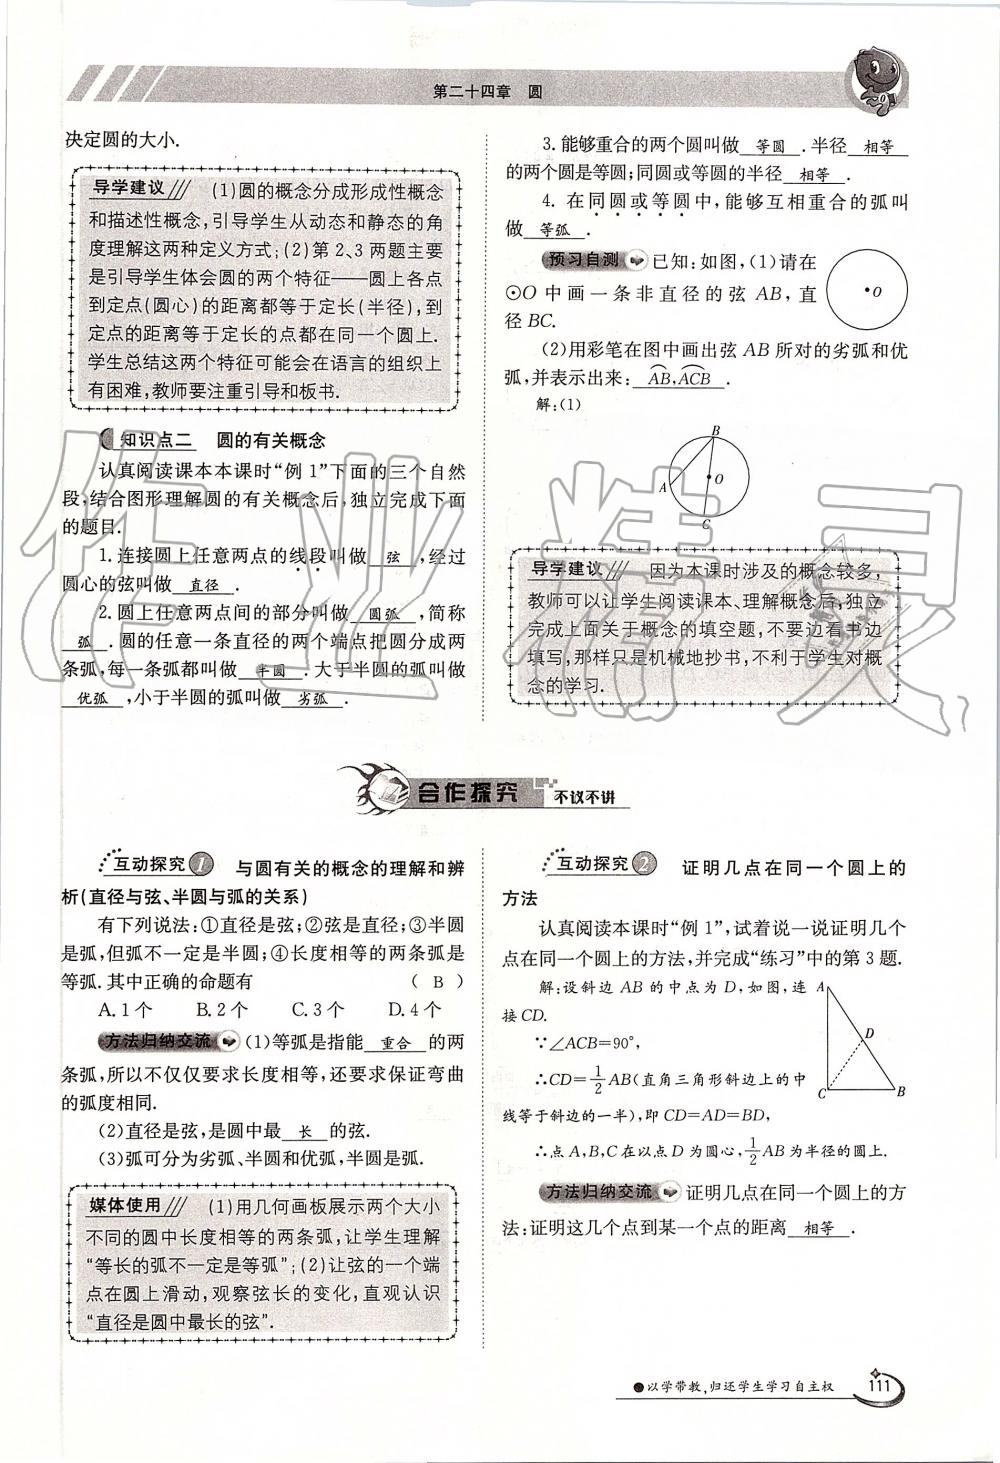 第二十四章　圆
决定圆的大小.
导学建议 (1)圆的概念分成形成性概念
和描述性概念,引导学生从动态和静态的角
度理解这两种定义方式;(2)第2、3两题主要
是引导学生体会圆的两个特征——圆上各点
到定点(圆心)的距离都等于定长(半径),到
定点的距离等于定长的点都在同一个圆上.
学生总结这两个特征可能会在语言的组织上
有困难,教师要注重引导和板书.
知识点二　圆的有关概念
认真阅读课本本课时“例1”下面的三个自然
段,结合图形理解圆的有关概念后,独立完成下面
的题目.
1.连接圆上任意两点的线段叫做 弦 ,经过
圆心的弦叫做 直径 .
2.圆上任意两点间的部分叫做 圆弧 ,简称
弧 .圆的任意一条直径的两个端点把圆分成两
条弧,每一条弧都叫做 半圆 .大于半圆的弧叫做
优弧 ,小于半圆的弧叫做 劣弧 .
3.能够重合的两个圆叫做 等圆 .半径 相等
的两个圆是等圆;同圆或等圆的半径 相等 .
4. 在同圆或等圆中,能够互相重合的弧叫
做 等弧 .
预习自测 已知:如图,(1)请在
⊙O中画一条非直径的弦AB,直
径BC.
O
(2)用彩笔在图中画出弦AB所对的劣弧和优
弧,并表示出来: A͡B,A͡CB .
解:(1)
B
O
A
C
导学建议 因为本课时涉及的概念较多,
教师可以让学生阅读课本、理解概念后,独立
完成上面关于概念的填空题,不要边看书边
填写,那样只是机械地抄书,不利于学生对概
念的学习.
合作探究 不议不讲
互动探究1 与圆有关的概念的理解和辨
析(直径与弦、半圆与弧的关系)
有下列说法:①直径是弦;②弦是直径;③半圆
是弧,但弧不一定是半圆;④长度相等的两条弧是
等弧.其中正确的命题有 ( B )
A.1个 B.2个 C.3个 D.4个
方法归纳交流 (1)等弧是指能 重合 的两
条弧,所以不仅仅要求长度相等,还要求保证弯曲
的弧度相同.
(2)直径是弦,是圆中最 长 的弦.
(3)弧可分为劣弧、半圆和优弧,半圆是弧.
媒体使用 (1)用几何画板展示两个大小
不同的圆中长度相等的两条弧,让学生理解
“等长的弧不一定是等弧”;(2)让弦的一个端
点在圆上滑动,观察弦长的变化,直观认识
“直径是圆中最长的弦”.
互动探究2 证明几点在同一个圆上的
方法
认真阅读本课时“例1”,试着说一说证明几个
点在同一个圆上的方法,并完成“练习”中的第3题.
解:设斜边AB的中点为D,如图,连
接CD.
∵∠ACB=90°,
∴CD=1/2AB(直角三角形斜边上的中
线等于斜边的一半),即CD=AD=BD,
∴点A,B,C在以点D为圆心,1/2AB为半径的圆上.
A
D
C
B
方法归纳交流 证明几点在同一个圆上的方
法:证明这几个点到某一个点的距离 相等 .
●以学带教,归还学生学习自主权
111
作业精灵